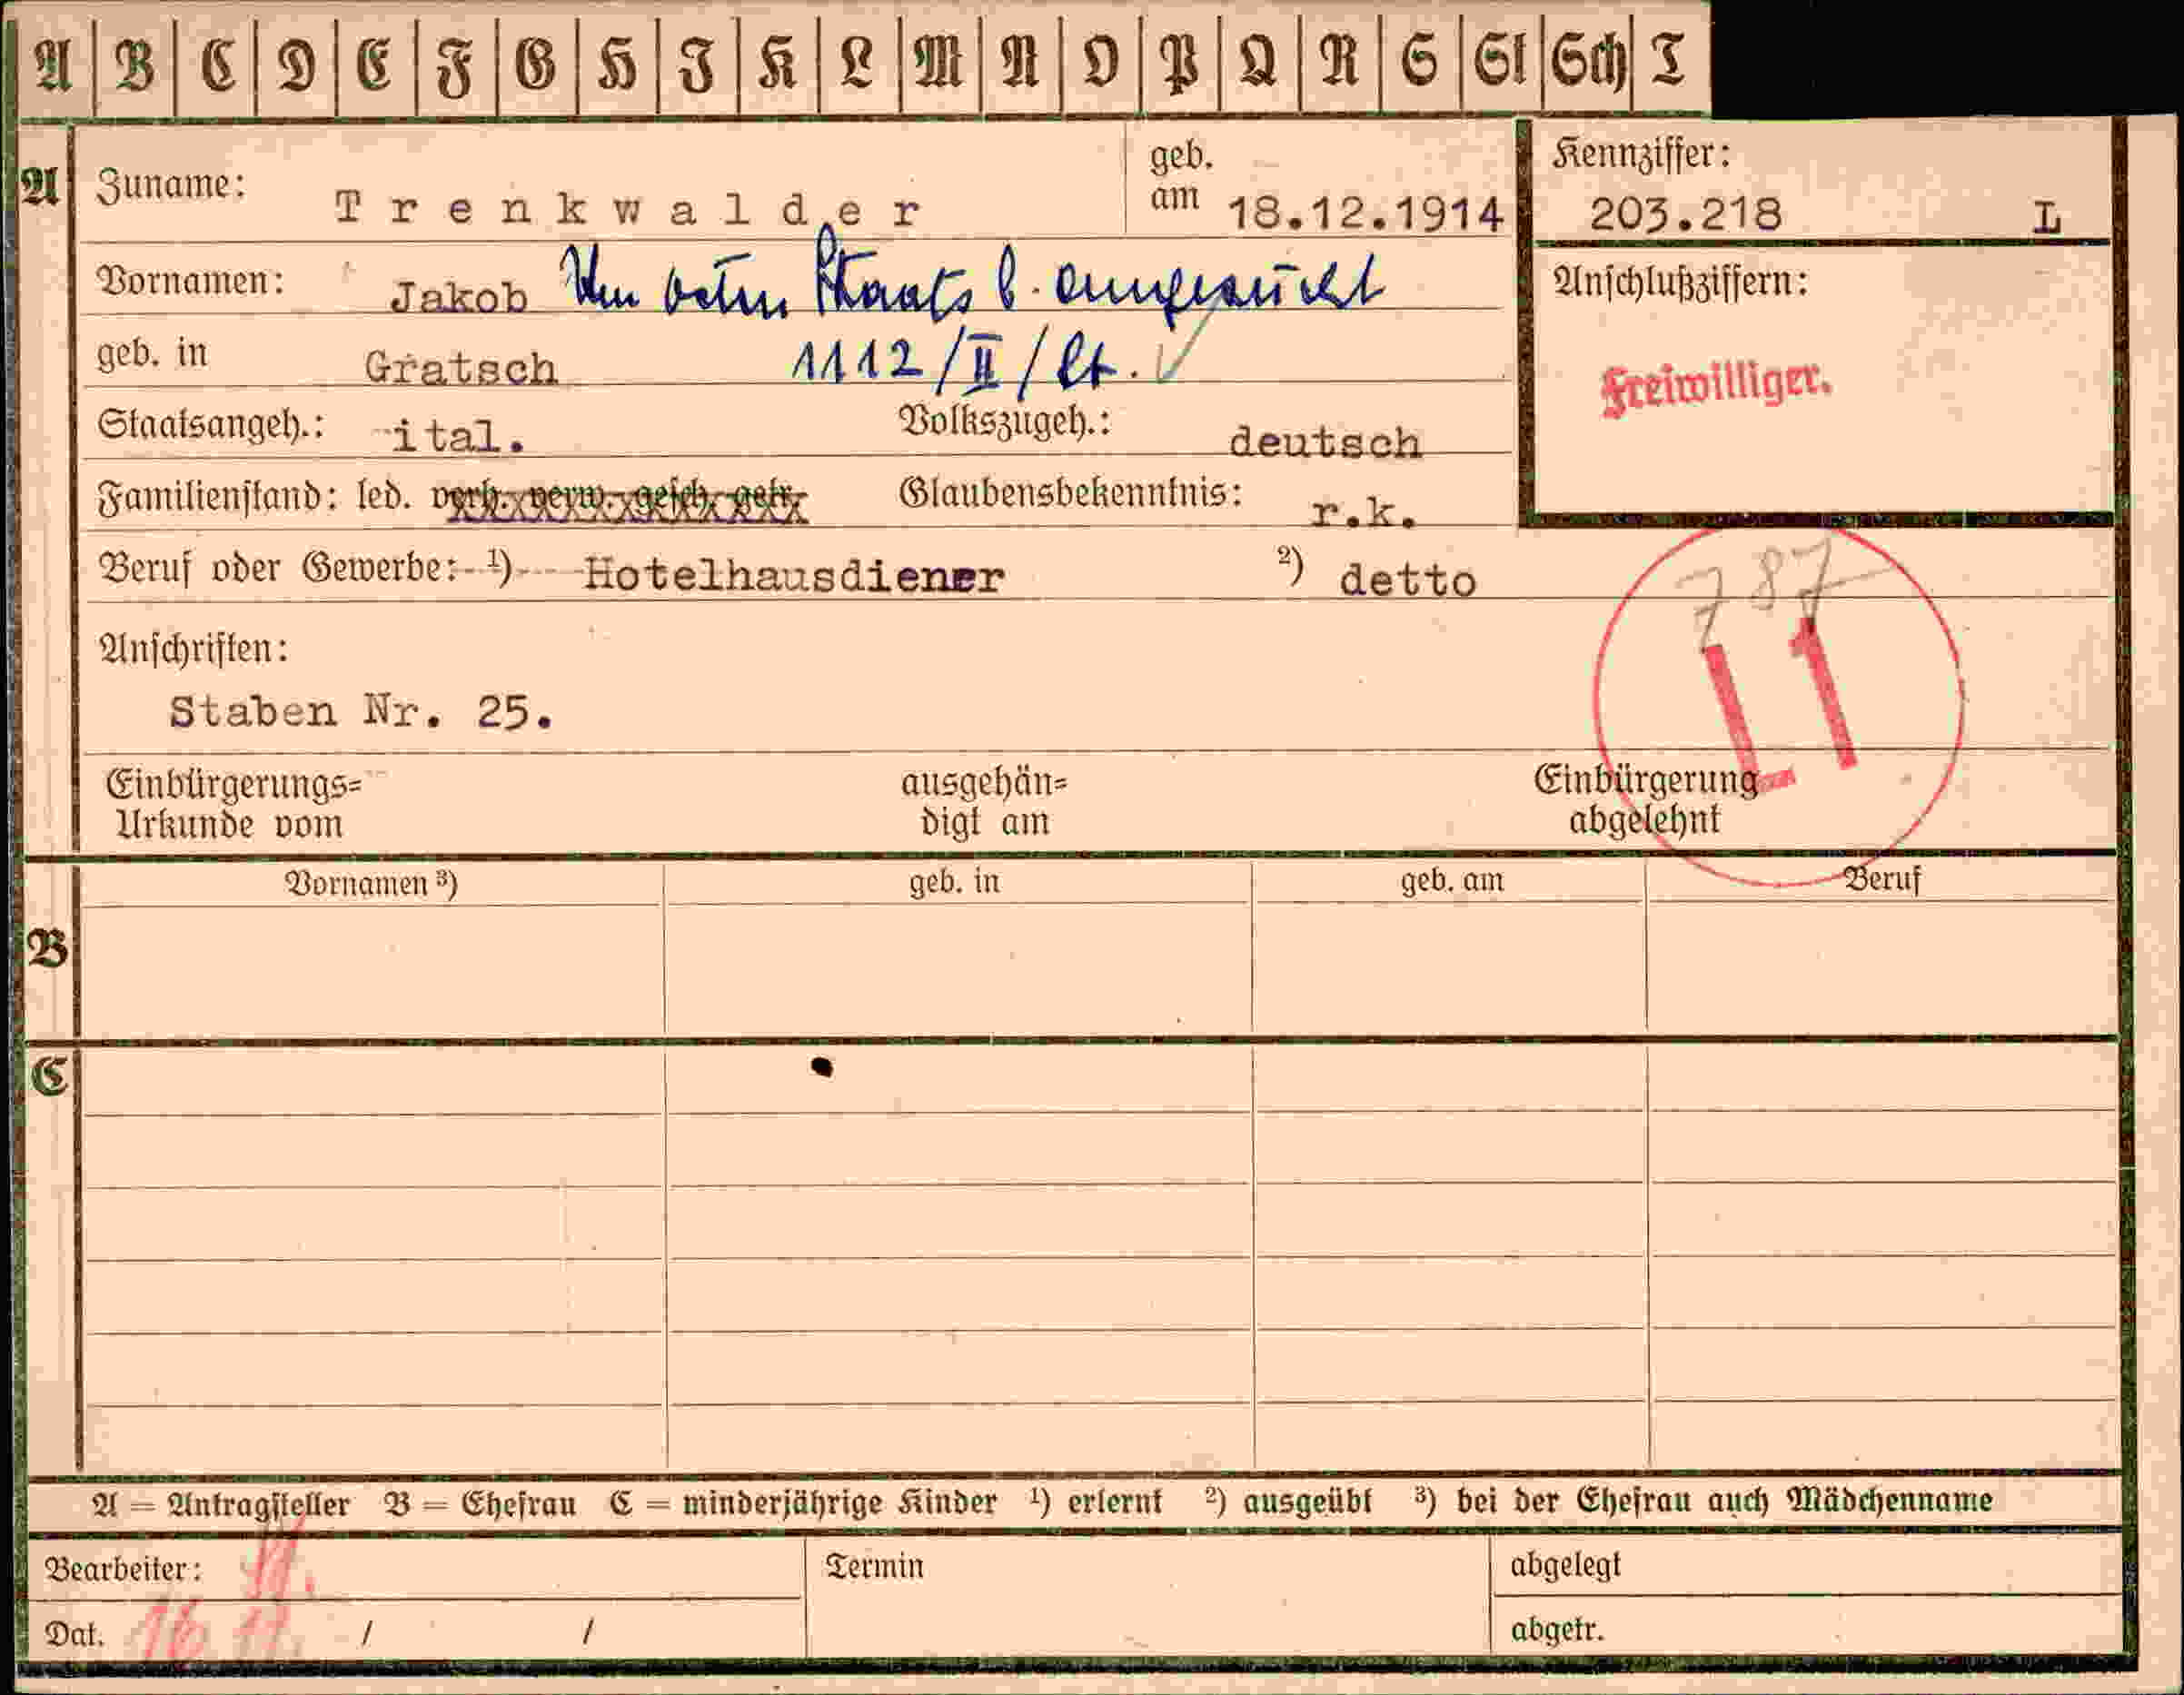 A B C D E F G H J K L M N O P Q R S St Sch T
A Zuname: Trenkwalder geb. am 18.12.1914 Kennziffer: 203.218 L
Vornamen: Jakob Um österr. Staats b. angesucht Anschlußziffern:
geb. in Gratsch 1112/II/ Freiwilliger.
Staatsangeh.: ital. Volkszugeh.: deutsch
Familienstand: led. verh. verw. gesch. getr. Glaubensbekenntnis: r.k.
Beruf oder Gewerbe: 1) Hotelhausdiener 2) detto
787
L1
Anschriften:
Staben Nr. 25.
Einbürgerungs= ausgehän= Einbürgerung
Urkunde vom digt am abgelehnt
Vornamen 3) geb. in geb. am Beruf
B
C
A = Antragsteller B = Ehefrau C = minderjährige Kinder 1) erlernt 2) ausgeübt 3) bei der Ehefrau auch Mädchenname
Bearbeiter: Termin abgelegt
Dat. 16 11. / / abgetr.